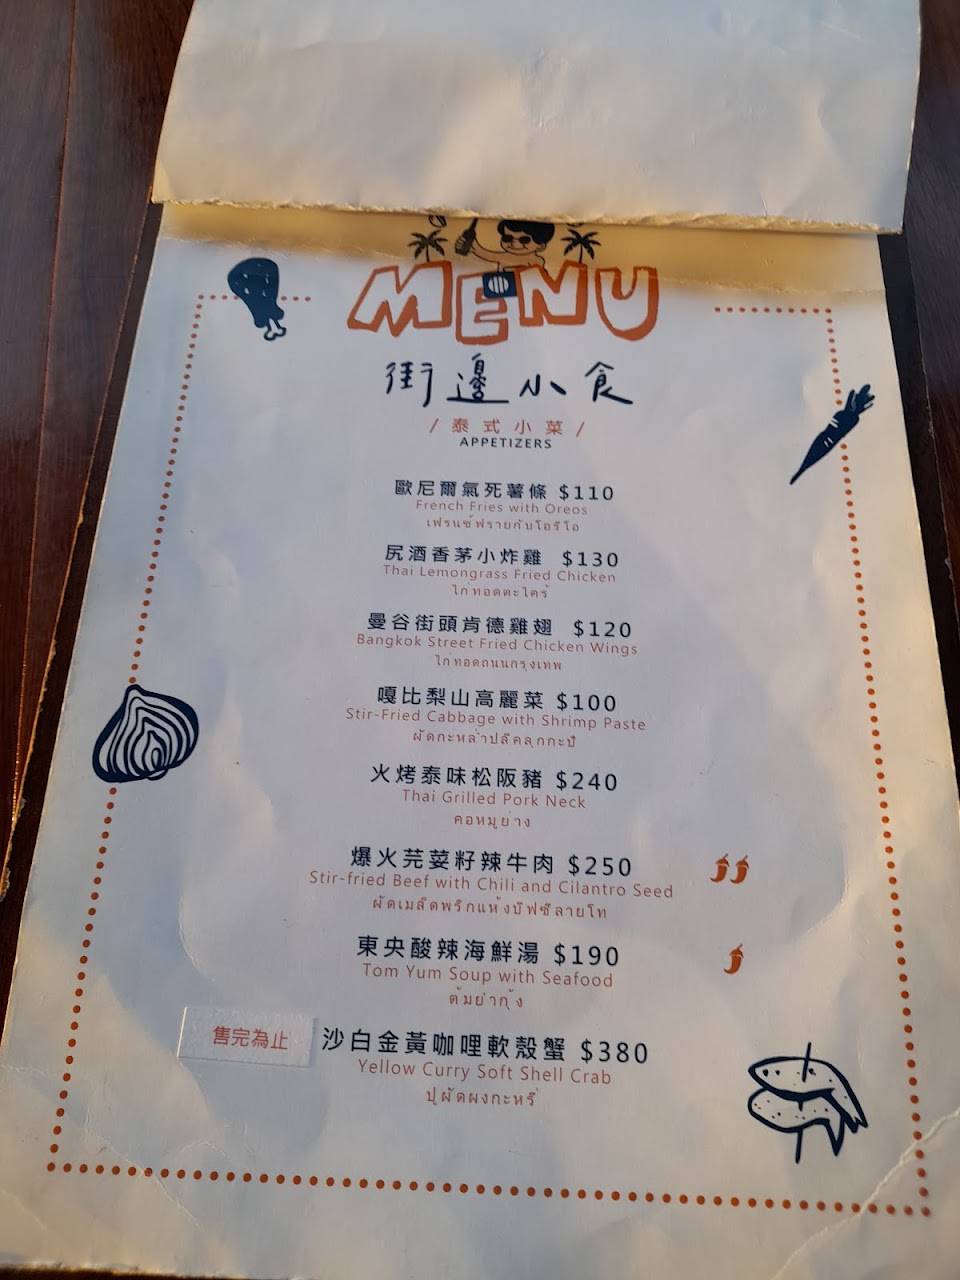 MENU
街邊小食
/ 泰式小菜 /
APPETIZERS
歐尼爾氣死薯條 $110
French Fries with Oreos
เฟรนช์ฟรายกับโอรีโอ
尻酒香茅小炸雞 $130
Thai Lemongrass Fried Chicken
ไก่ทอดตะไคร้
曼谷街頭肯德雞翅 $120
Bangkok Street Fried Chicken Wings
ไก่ทอดถนนกรุงเทพ
嘎比梨山高麗菜 $100
Stir-Fried Cabbage with Shrimp Paste
ผัดกะหล่ำปลีคลุกกะปิ
火烤泰味松阪豬 $240
Thai Grilled Pork Neck
คอหมูย่าง
爆火芫荽籽辣牛肉 $250
Stir-fried Beef with Chili and Cilantro Seed
ผัดเมล็ดพริกแห้งบีฟซีลายโท
東央酸辣海鮮湯 $190
Tom Yum Soup with Seafood
ต้มยำกุ้ง
售完為止 沙白金黃咖哩軟殼蟹 $380
Yellow Curry Soft Shell Crab
ปูผัดผงกะหรี่